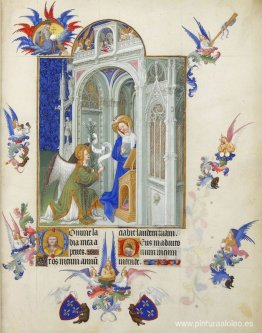 Domine la
bia mea a
peries.
os meum annun
ciabit laudem tuam.
Deus in adiuto
rium meum in
tende.
www.pinturasaloleo.es